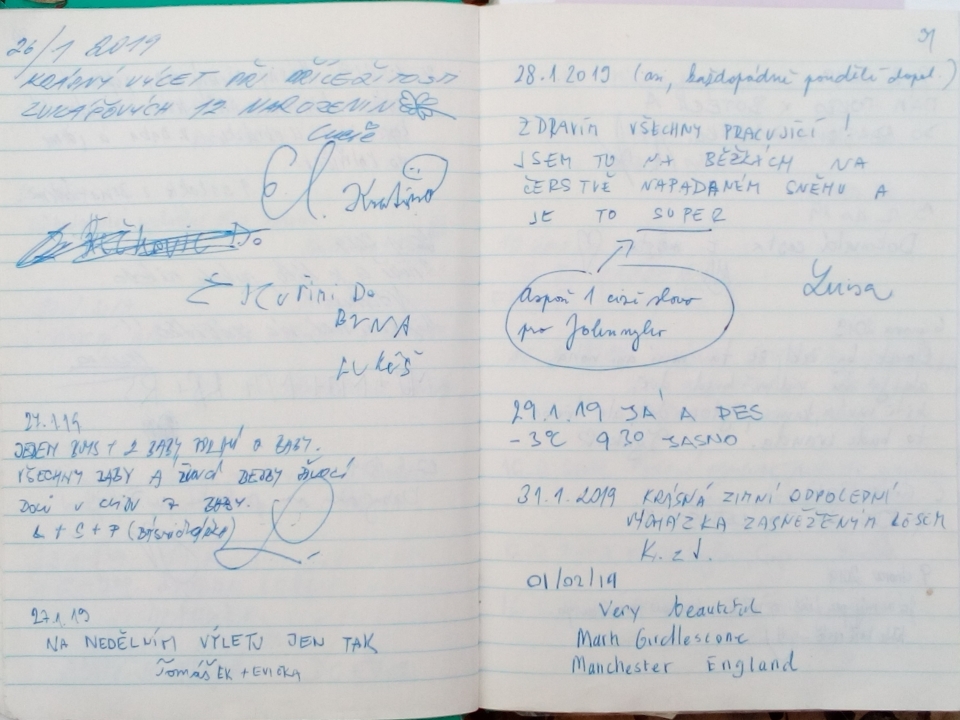 26/1 2019
KRÁSNÝ VÝLET PŘI PŘÍLEŽITOSTI
LUKÁŠOVÝCH 12 NAROZENIN
Lucie
Kristina
Z Kuřimi Do
BRNA
LUKÁŠ
27.1.19
JEDEN + 2 ŽÁBY
VŠECHNY ŽÁBY A
L + S + P
27.1.19
NA NEDĚLNÍM VÝLETU JEN TAK
TomášEK + EVIČKA
91
28.1.2019 (asi, každopádně pondělí dopol.)
ZDRAVÍM VŠECHNY PRACUJÍCÍ!
JSEM TU NA BĚŽKÁCH NA
ČERSTVĚ NAPADANÉM SNĚHU A
JE TO SUPER
Aspoň 1 cizí slovo
pro
Luisa
29.1.19 JÁ A PES
-3°C 9.30 JASNO
31.1.2019 KRÁSNÁ ZIMNÍ ODPOLEDNÍ
VYCHÁZKA ZASNĚŽENÝM LESEM
K. z J.
01/02/19
Very beautiful
Mark Girdlestone
Manchester England